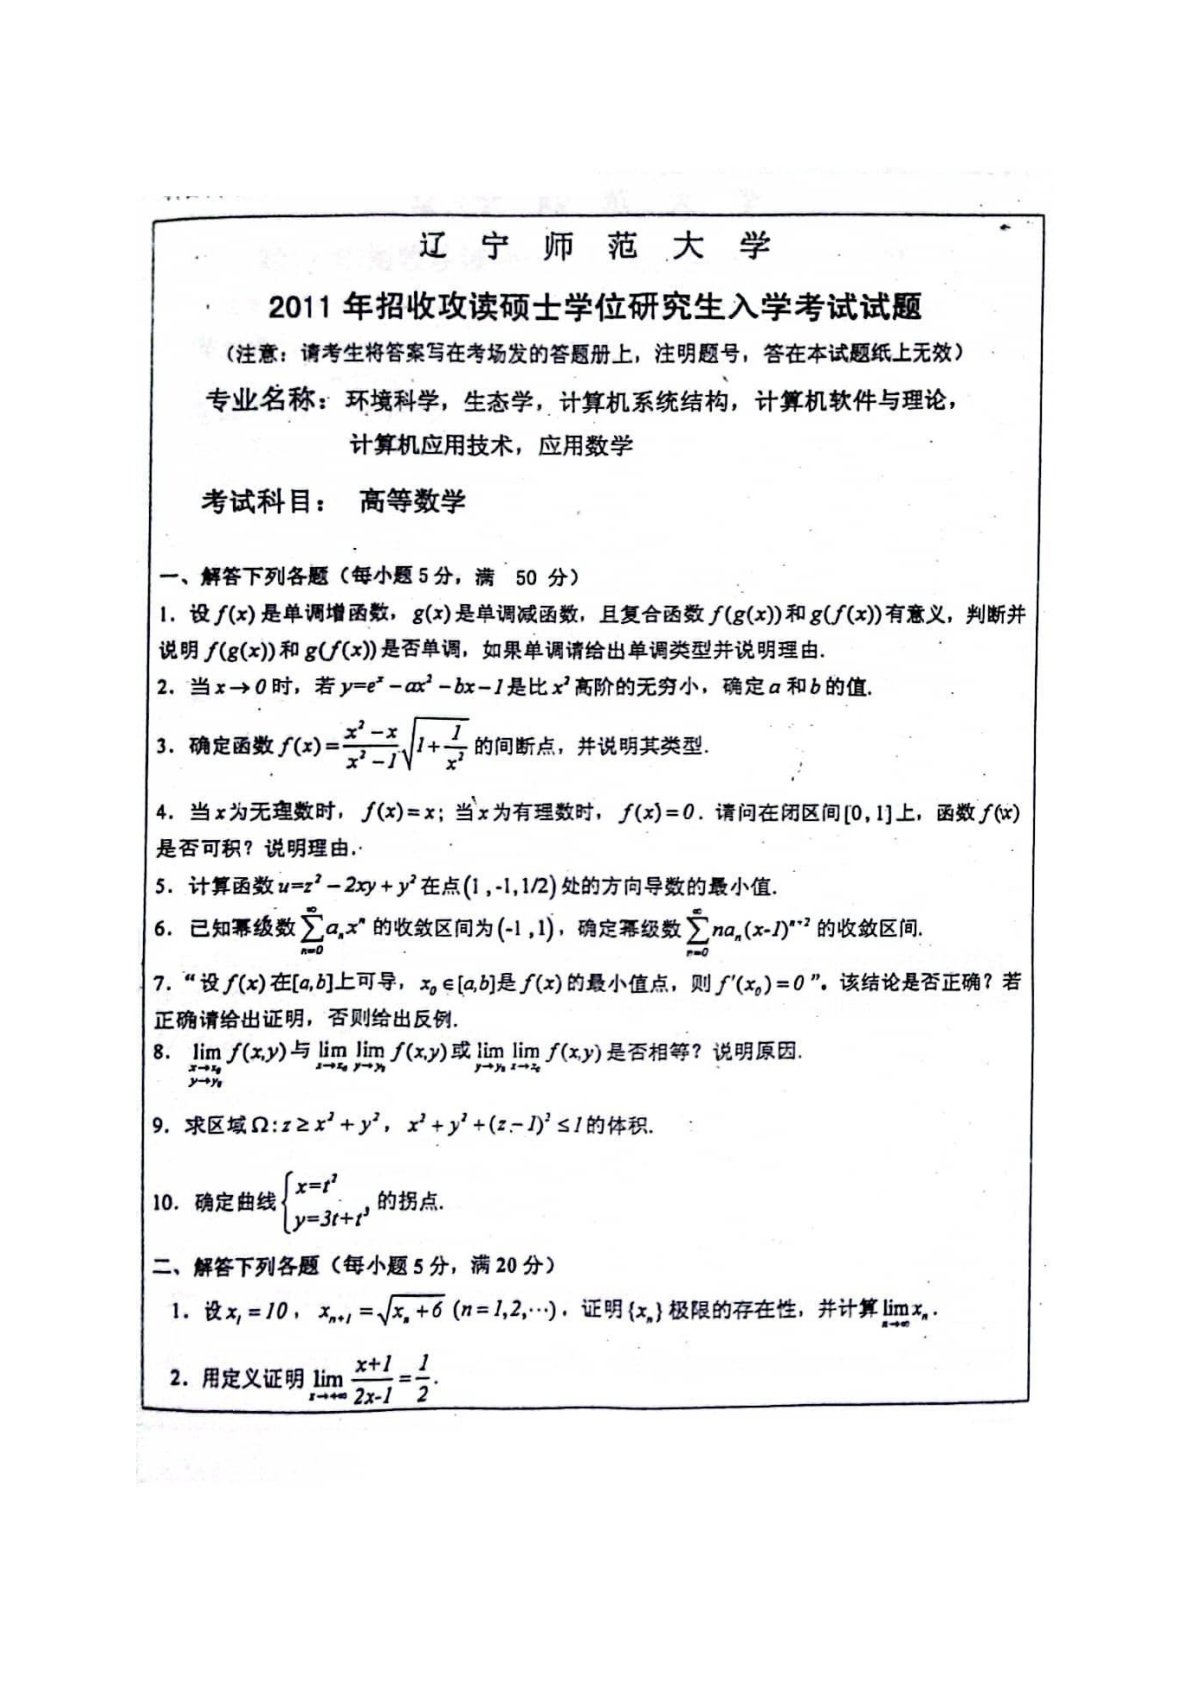 辽宁师范大学
2011 年招收攻读硕士学位研究生入学考试试题
（注意：请考生将答案写在考场发的答题册上，注明题号，答在本试题纸上无效）
专业名称：环境科学，生态学，计算机系统结构，计算机软件与理论，
计算机应用技术，应用数学
考试科目： 高等数学
一、解答下列各题（每小题 5 分，满 50 分）
1．设 f(x) 是单调增函数，g(x) 是单调减函数，且复合函数 f(g(x)) 和 g(f(x)) 有意义，判断并
说明 f(g(x)) 和 g(f(x)) 是否单调，如果单调请给出单调类型并说明理由.
2．当 x→0 时，若 y=e^x −ax² −bx−1 是比 x² 高阶的无穷小，确定 a 和 b 的值.
3．确定函数 f(x)=\frac{x²−x}{x²−1}\sqrt{1+\frac{1}{x²}} 的间断点，并说明其类型.
4．当 x 为无理数时，f(x)=x；当 x 为有理数时，f(x)=0．请问在闭区间 [0,1] 上，函数 f(x)
是否可积？说明理由.
5．计算函数 u=z²−2xy+y² 在点 (1,-1,1/2) 处的方向导数的最小值.
6．已知幂级数 \sum_{n=0}^{∞} a_n x^n 的收敛区间为 (-1,1)，确定幂级数 \sum_{n=0}^{∞} na_n(x-1)^{n+2} 的收敛区间.
7．“设 f(x) 在[a,b]上可导，x₀∈[a,b]是 f(x) 的最小值点，则 f′(x₀)=0”。该结论是否正确？若
正确请给出证明，否则给出反例.
8．\lim_{x→x₀, y→y₀} f(x,y) 与 \lim_{x→x₀} \lim_{y→y₀} f(x,y) 或 \lim_{y→y₀} \lim_{x→x₀} f(x,y) 是否相等？说明原因.
9．求区域 Ω: z≥x²+y²，x²+y²+(z−1)²≤1 的体积.
10．确定曲线 \begin{cases} x=t² \\ y=3t+t³ \end{cases} 的拐点.
二、解答下列各题（每小题 5 分，满 20 分）
1．设 x₁=10，x_{n+1}=\sqrt{x_n+6} (n=1,2,⋯)．证明 {x_n} 极限的存在性，并计算 \lim_{n→∞} x_n．
2．用定义证明 \lim_{x→+∞} \frac{x+1}{2x-1}=\frac{1}{2}.